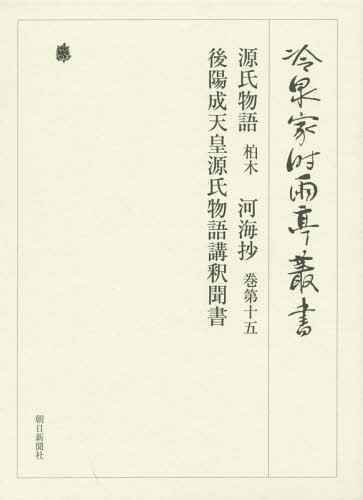 冷泉家时雨亭叢書
源氏物語 柏木 河海抄 巻第十五
後陽成天皇源氏物語講釈聞書
朝日新聞社